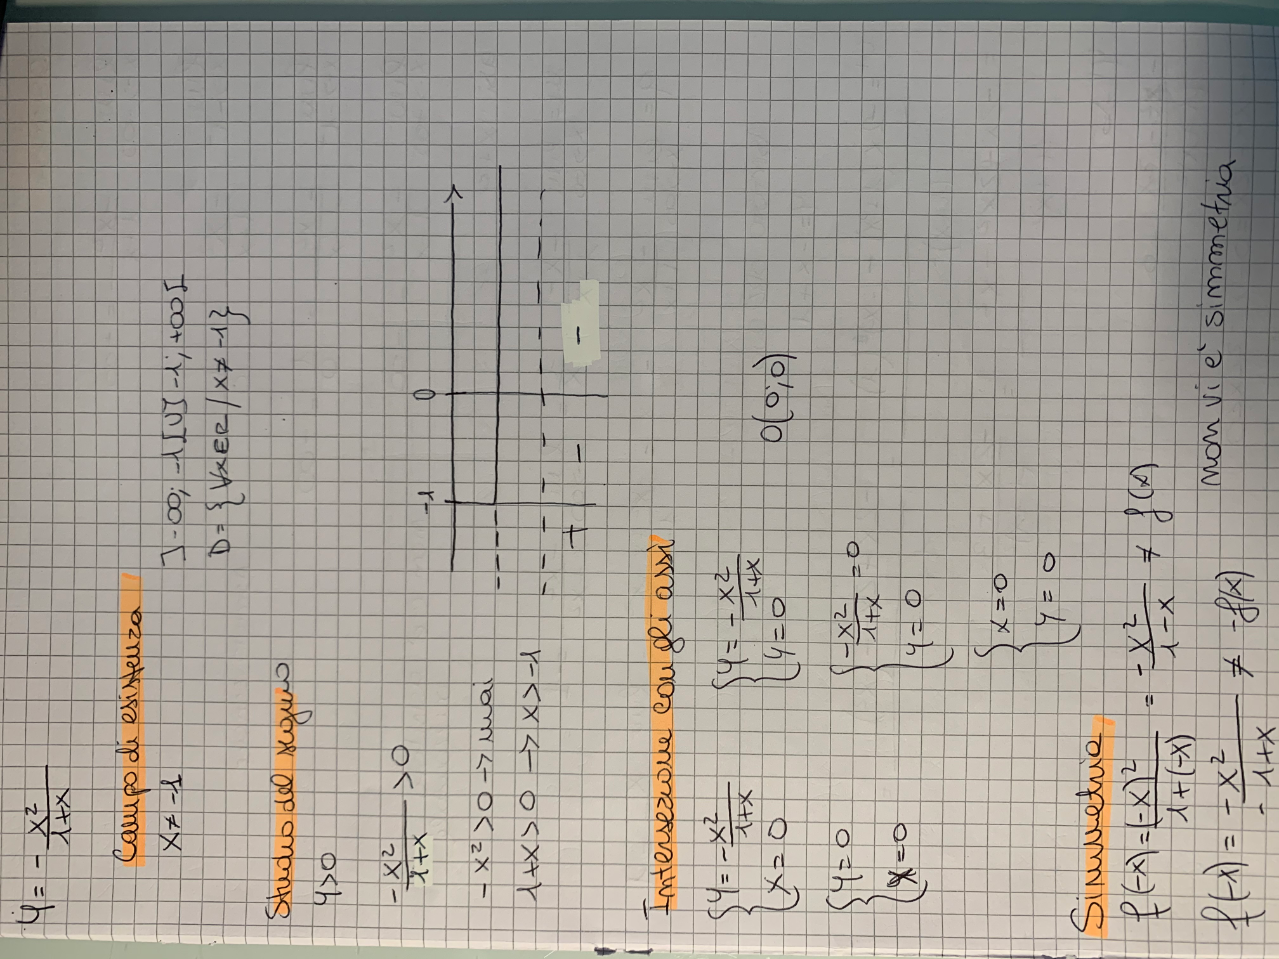 y = - x²/(1+x)
Campo di esistenza
x ≠ -1
]-∞; -1[ U ]-1; +∞[
D = { ∀x∈R / x ≠ -1 }
Studio del segno
y>0
-x²/(1+x) > 0
- x² > 0 -> mai
1+x > 0 -> x > -1
-1 0
+ - -
Intersezione con gli assi
{ y = - x²/(1+x)
{ x = 0
{ y = 0
{ x = 0
{ y = - x²/(1+x)
{ y = 0
{ - x²/(1+x) = 0
{ y = 0
{ x = 0
{ y = 0
O(0;0)
Simmetria
f(-x) = (-x)²/(1+(-x)) = - x²/(1-x) ≠ f(x)
f(-x) = - x²/(-1+x) ≠ -f(x)
non vi è simmetria